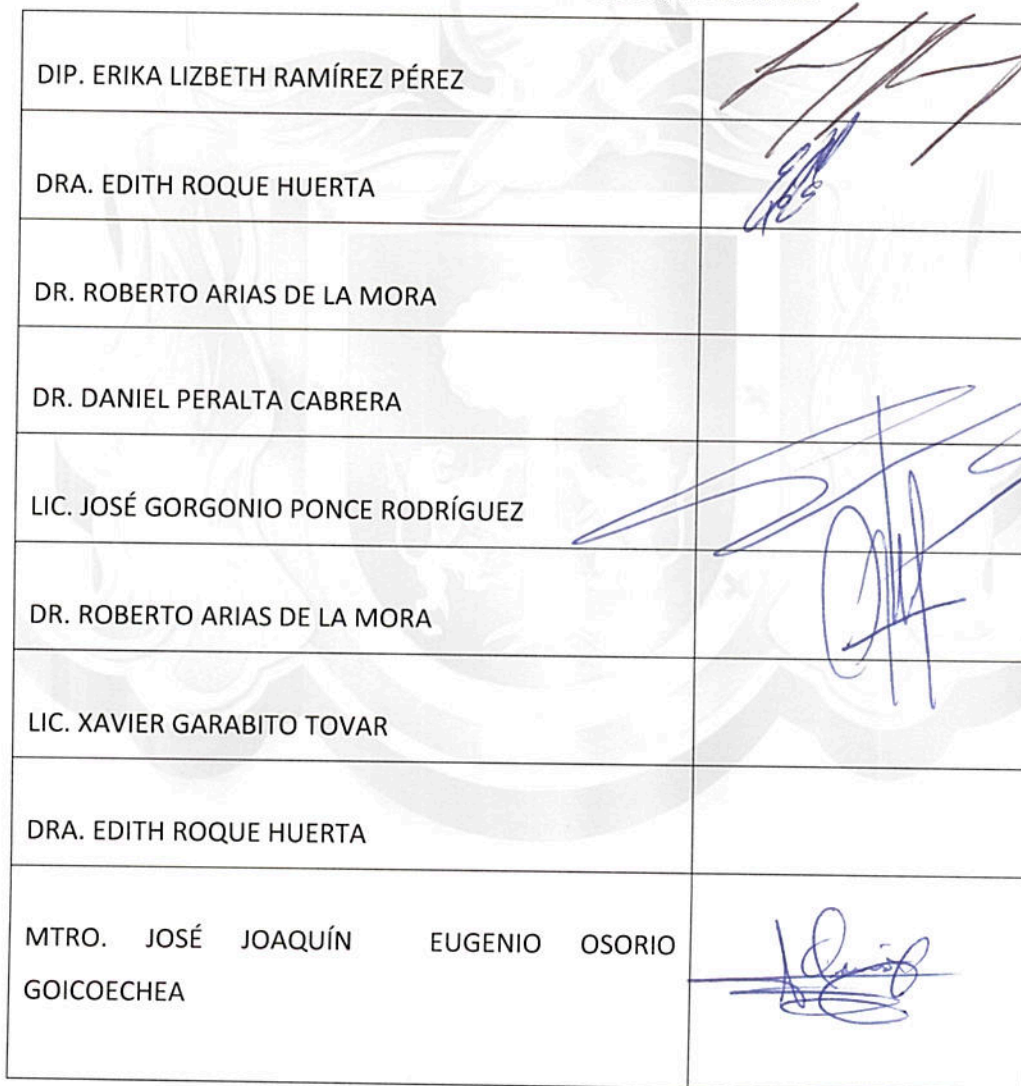 DIP. ERIKA LIZBETH RAMÍREZ PÉREZ
DRA. EDITH ROQUE HUERTA
DR. ROBERTO ARIAS DE LA MORA
DR. DANIEL PERALTA CABRERA
LIC. JOSÉ GORGONIO PONCE RODRÍGUEZ
DR. ROBERTO ARIAS DE LA MORA
LIC. XAVIER GARABITO TOVAR
DRA. EDITH ROQUE HUERTA
MTRO. JOSÉ JOAQUÍN EUGENIO OSORIO
GOICOECHEA